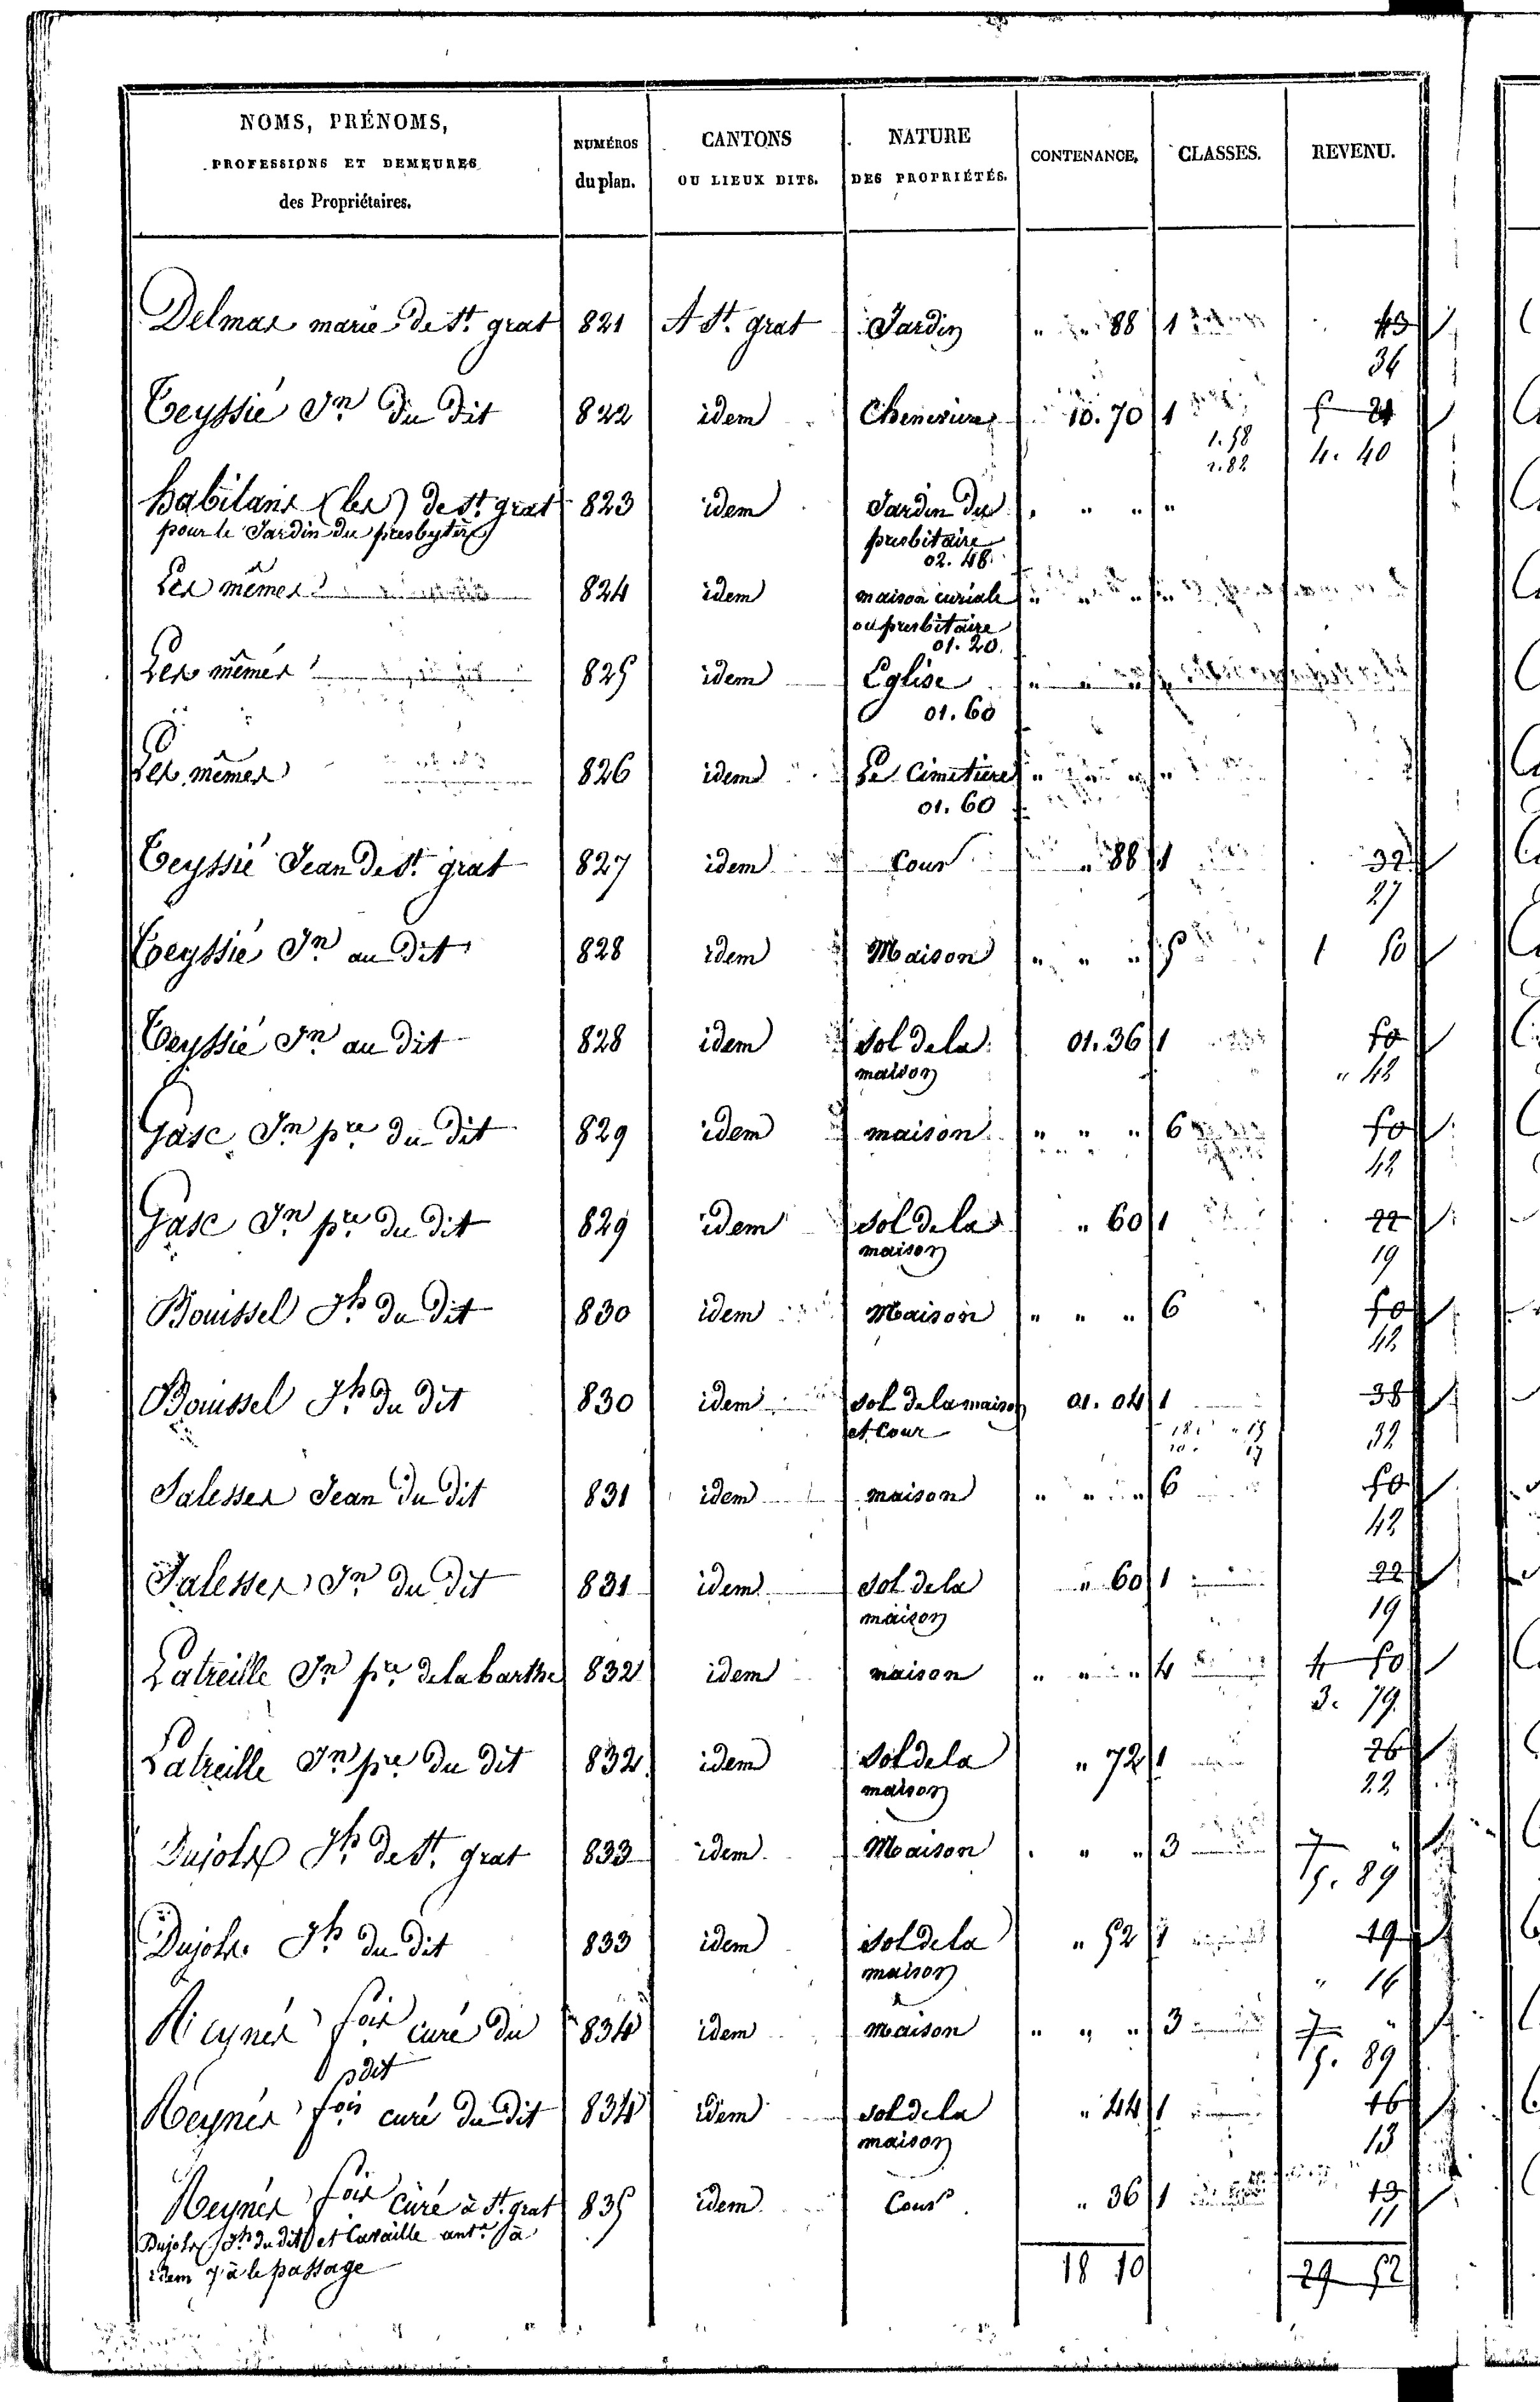 NOMS, PRÉNOMS, PROFESSIONS ET DEMEURES des Propriétaires. NUMÉROS du plan. CANTONS OU LIEUX DITS. NATURE DES PROPRIÉTÉS. CONTENANCE. CLASSES. REVENU.
Delmas marie de St. grat 821 A St. grat Jardin " " 88 1 43
36
Teyssié Jn du dit 822 idem Cheneviere 10.70 1 5 21
1.58
2.82 4. 40
habitans (les) de St. grat 823 idem Jardin du " " " "
pour le Jardin du presbytère presbitaire
02. 48.
Les mêmes 824 idem maison curiale " " " "
ou presbitaire
01. 20.
Les mêmes 825 idem Eglise " " "
01. 60
Les mêmes 826 idem Le Cimetiere " " " "
01. 60
Teyssié Jean de St. grat 827 idem Cour " 88 1 32
27
Teyssié Jn au dit 828 idem Maison " " " 5 1 50
Teyssié Jn au dit 828 idem Sol de la 01.36 1 50
maison " 42
Gasc Jn pre du dit 829 idem maison " " " 6 50
42
Gasc Jn pre du dit 829 idem Sol de la " 60 1 22
maison 19
Bouissel Jh du dit 830 idem Maison " " " 6 50
42
Bouissel Jh du dit 830 idem Sol de la maison 01. 04 1 38
et Cour 32
Salesses Jean du dit 831 idem maison " " " 6 50
42
Salesses Jn du dit 831 idem Sol de la " 60 1 22
maison 19
Latreille Jn pre de la barthe 832 idem maison " " " 4 4 50
3. 79.
Latreille Jn pre du dit 832 idem Sol de la " 72 1 26
maison 22
Dujols Jh de St. grat 833 idem Maison " " " 3 7 "
5. 89
Dujols Jh du dit 833 idem Sol de la " 52 1 19
maison " 16
Meynés fois curé du 834 idem maison " " " 3 7 "
dit 5. 89
Meynés fois curé du dit 834 idem Sol de la " 44 1 16
maison 13
Meynés fois curé à St. grat 835 idem Cour " 36 1 13
Dujols Jh du dit et Cavaille ante à 11
idem à le passage 18 10 29 52